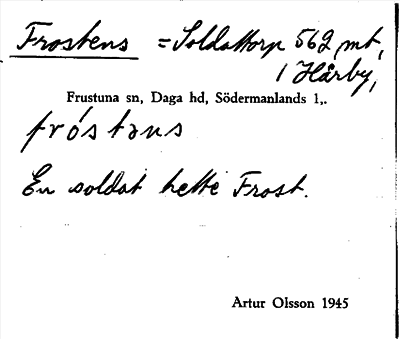 Frostens = Soldattorp 562, mt,
i Hårby,
Frustuna sn, Daga hd, Södermanlands l,.
fróstəns
En soldat hette Frost.
Artur Olsson 1945